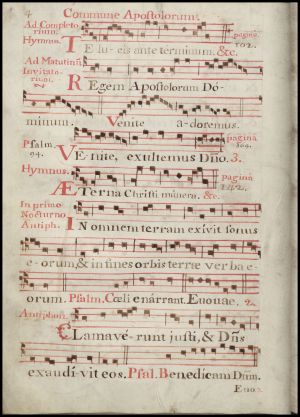 4 Commune Apostolorum.
Ad Completo
rium.
Hymnus. TE lucis ante terminum, &c. pagina 102.
Ad Matutin.
Invitato-
rium. REgem Apostolorum Dó-
minum. Venite adoremus.
Psalm. 94. VEnite, exultemus Dño. 3. pagina
Hymnus. ÆTerna Christi munera. &c. pagina
In primo
Nocturno
Antiph. IN omnem terram exivit sonus
eorum, & in fines orbis terræ verba e-
orum. Psalm. Cœli enárrant. Euouae. 2.
Antiphon. CLamavérunt justi, & Dñs
exaudivit eos. Psal. Benedicam Dñm.
Euo